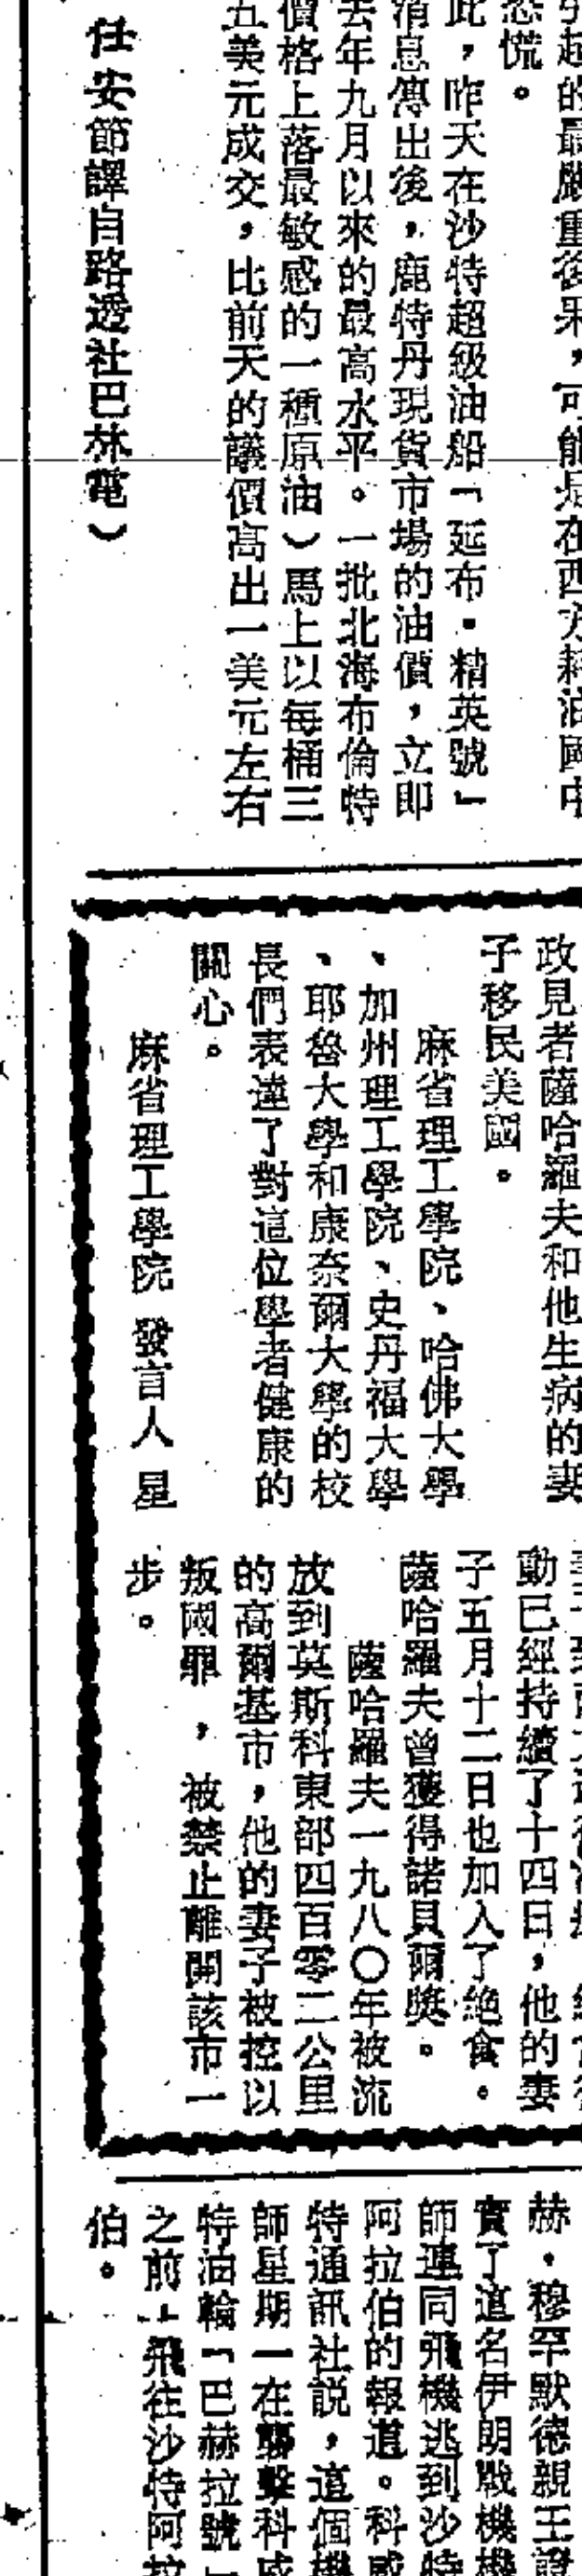 引起的最嚴重後果，可能是在西方耗油國中
恐慌。
此，昨天在沙特超級油船「延布·精英號」
消息傳出後，鹿特丹現貨市場的油價，立即
去年九月以來的最高水平。一批北海布倫特
價格上落最敏感的一種原油）馬上以每桶三
五美元成交，比前天的議價高出一美元左右
任安節譯自路透社巴林電）
政見者薩哈羅夫和他生病的妻
子移民美國。
麻省理工學院、哈佛大學
、加州理工學院、史丹福大學
、耶魯大學和康奈爾大學的校
長們表達了對這位學者健康的
關心。
麻省理工學院 發言人 星
動已經持續了十四日，他的妻
子五月十二日也加入了絶食。
薩哈羅夫曾獲得諾貝爾獎。
薩哈羅夫一九八〇年被流
放到莫斯科東部四百零二公里
的高爾基市，他的妻子被控以
叛國罪，被禁止離開該市一
步。
赫·穆罕默德親王證
實了這名伊朗戰機機
師連同飛機逃到沙特
阿拉伯的報道。科威
特通訊社說，這個機
師星期一在襲擊科威
特油輪「巴赫拉號」
之前，飛往沙特阿拉
伯。